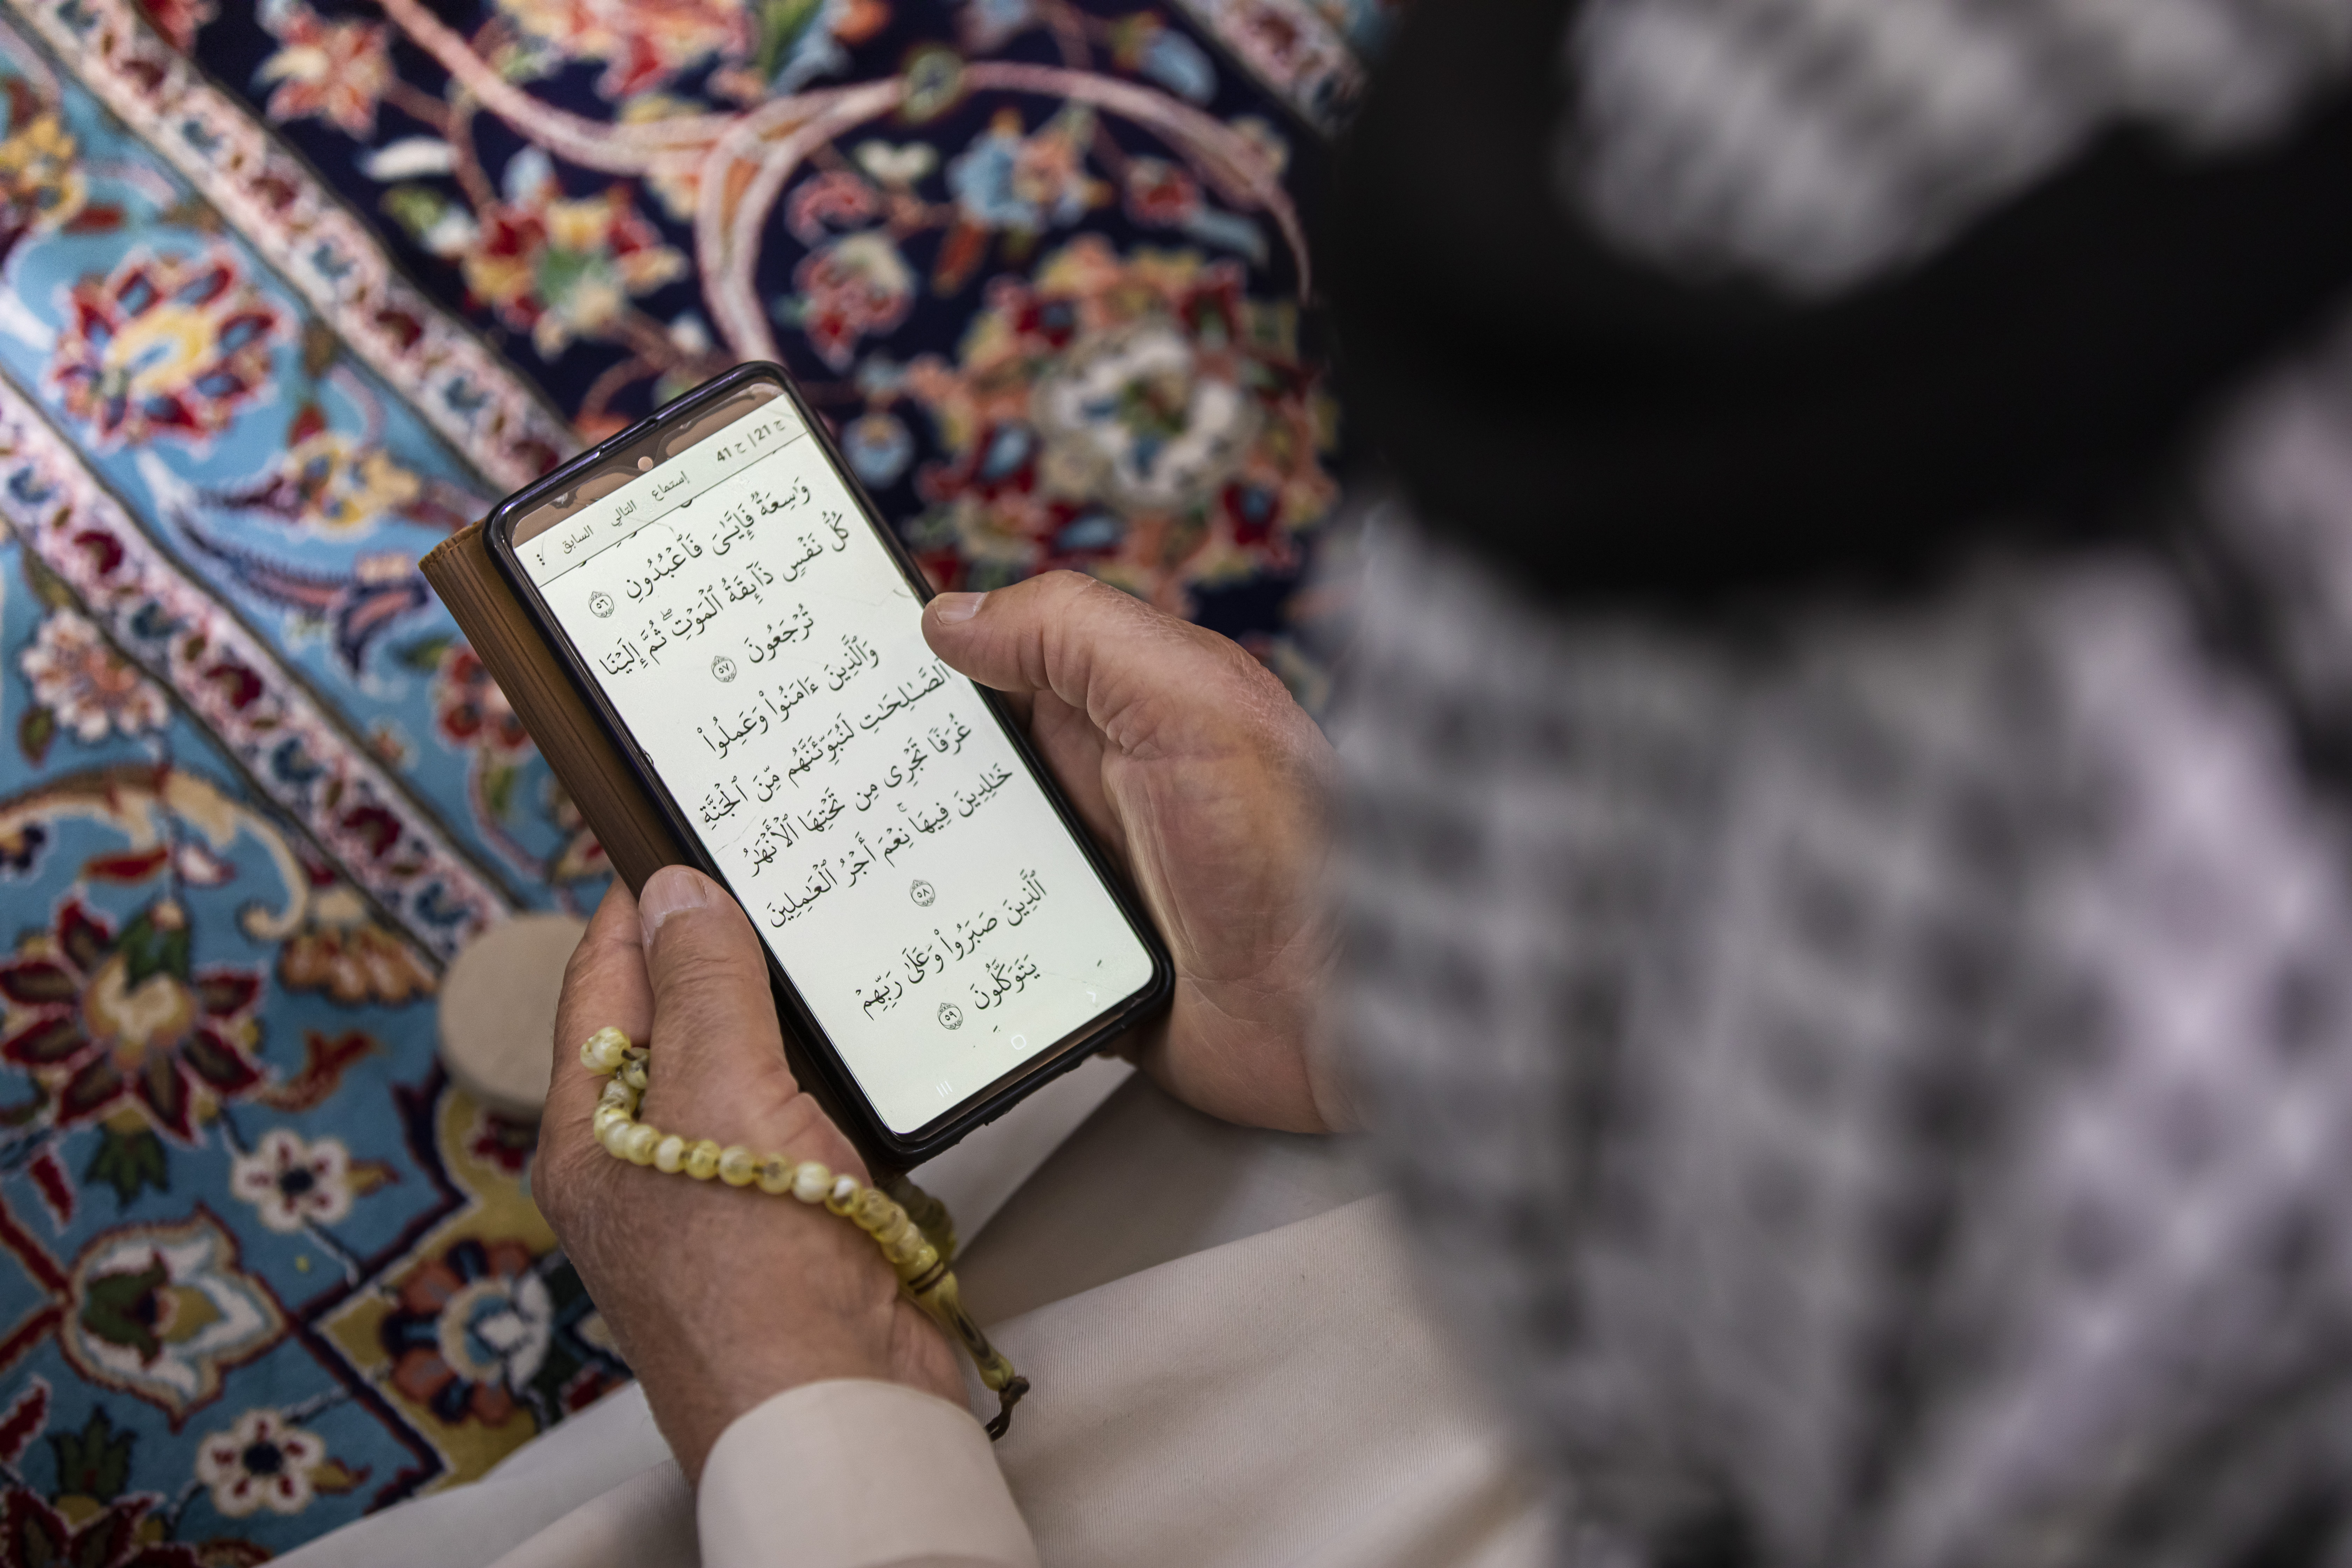 ج 21 | ح 41
إستماع التالي السابق
وَٰسِعَةٌ فَإِيَّـٰىَ فَٱعۡبُدُونِ ٥٦
كُلُّ نَفۡسٖ ذَآئِقَةُ ٱلۡمَوۡتِۖ ثُمَّ إِلَيۡنَا
تُرۡجَعُونَ ٥٧
وَٱلَّذِينَ ءَامَنُواْ وَعَمِلُواْ
ٱلصَّـٰلِحَٰتِ لَنُبَوِّئَنَّهُم مِّنَ ٱلۡجَنَّةِ
غُرَفٗا تَجۡرِي مِن تَحۡتِهَا ٱلۡأَنۡهَٰرُ
خَٰلِدِينَ فِيهَاۚ نِعۡمَ أَجۡرُ ٱلۡعَٰمِلِينَ
٥٨
ٱلَّذِينَ صَبَرُواْ وَعَلَىٰ رَبِّهِمۡ
يَتَوَكَّلُونَ ٥٩